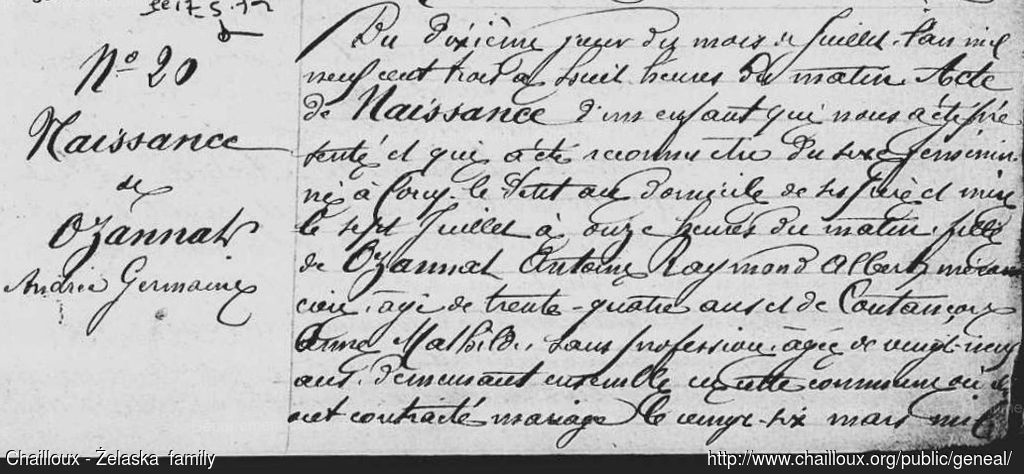 le 17-5-72
N° 20
Naissance
de
Ozannat
Andrée Germaine
Du dixième jour du mois de Juillet l'an mil
neuf cent trois à huit heures du matin. Acte
de Naissance d'un enfant qui nous a été pré
senté et qui a été reconnu être du sexe féminin
né à le Petit au domicile de ses père et mère
le sept Juillet à onze heures du matin, fille
de Ozannat Antoine Raymond Albert, mécani
cien, âgé de trente-quatre ans et de Coutançon
Anne Mathilde, sans profession, âgée de vingt-neuf
ans, demeurant ensemble en cette commune où ils
ont contracté mariage le vingt-six mars mil
Chailloux - Żelaska family
http://www.chailloux.org/public/geneal/